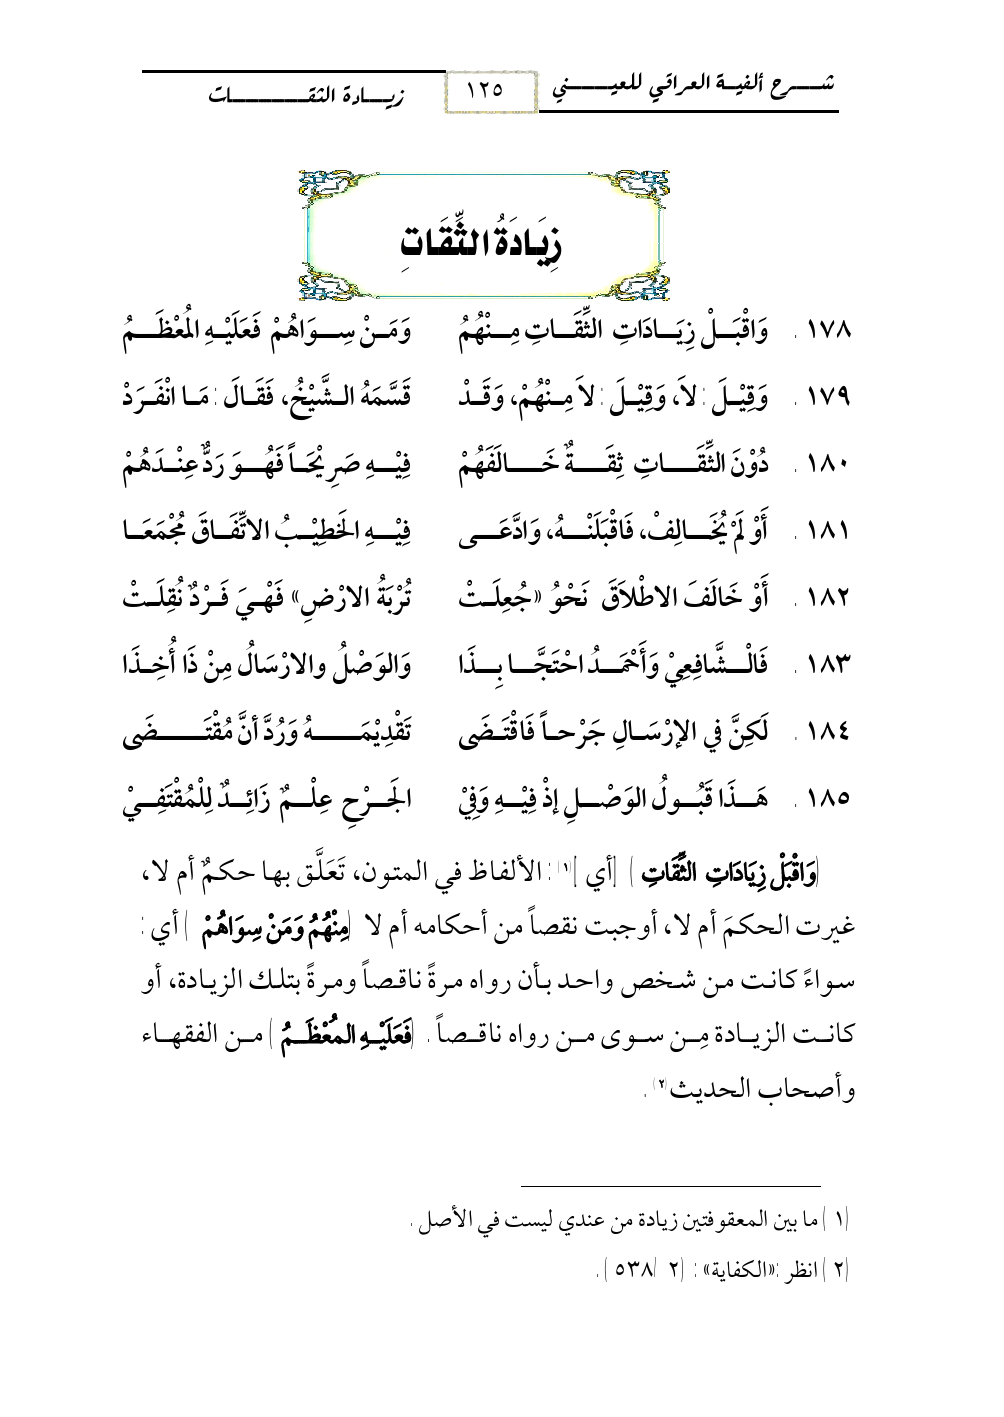 شـــرح ألفيـة العراقي للعيــــني ١٢٥ زيـــادة الثقـــــــات
زِيَادَةُ الثِّقَاتِ
١٧٨ . وَاقْبَلْ زِيَادَاتِ الثِّقَاتِ مِنْهُمُ وَمَنْ سِوَاهُمْ فَعَلَيْهِ المُعْظَمُ
١٧٩ . وَقِيْلَ : لاَ، وَقِيْلَ : لاَ مِنْهُمْ، وَقَدْ قَسَّمَهُ الشَّيْخُ، فَقَالَ : مَا انْفَرَدْ
١٨٠ . دُوْنَ الثِّقَاتِ ثِقَةٌ خَالَفَهُمْ فِيْهِ صَرِيْحَاً فَهُوَ رَدٌّ عِنْدَهُمْ
١٨١ . أَوْ لَمْ يُخَالِفْ، فَاقْبَلَنْهُ، وَادَّعَى فِيْهِ الخَطِيْبُ الاتِّفَاقَ مُجْمَعَا
١٨٢ . أَوْ خَالَفَ الاطْلاَقَ نَحْوُ «جُعِلَتْ تُرْبَةُ الارْضِ» فَهْيَ فَرْدٌ نُقِلَتْ
١٨٣ . فَالْشَّافِعِيْ وَأَحْمَدُ احْتَجَّا بِذَا وَالوَصْلُ والارْسَالُ مِنْ ذَا أُخِذَا
١٨٤ . لَكِنَّ في الإرْسَالِ جَرْحاً فَاقْتَضَى تَقْدِيْمَهُ وَرُدَّ أنَّ مُقْتَضَى
١٨٥ . هَذَا قَبُولُ الوَصْلِ إذْ فِيْهِ وَفِيْ الجَرْحِ عِلْمٌ زَائِدٌ لِلْمُقْتَفِيْ
(وَاقْبَلْ زِيَادَاتِ الثِّقَاتِ) [أي](١): الألفاظ في المتون، تَعَلَّق بها حكمٌ أم لا،
غيرت الحكمَ أم لا، أوجبت نقصاً من أحكامه أم لا (مِنْهُمُ وَمَنْ سِوَاهُمْ) أي :
سواءً كانت من شخص واحد بأن رواه مرةً ناقصاً ومرةً بتلك الزيادة، أو
كانت الزيادة مِن سوى من رواه ناقصاً . (فَعَلَيْهِ المُعْظَمُ) من الفقهاء
وأصحاب الحديث(٢).
(١) ما بين المعقوفتين زيادة من عندي ليست في الأصل .
(٢) انظر : «الكفاية» : (٢/ ٥٣٨) .